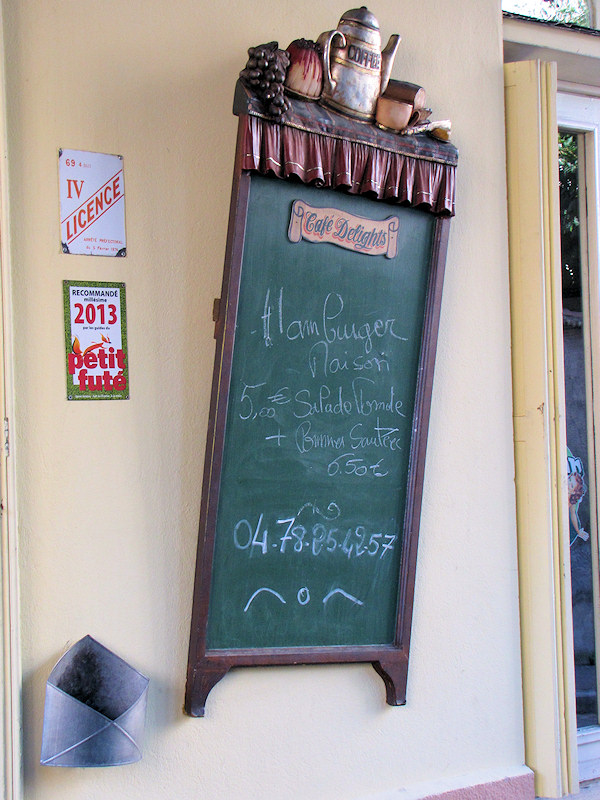 COFFEE
Café Delights
69 4
IV
LICENCE
ARRÊTÉ PRÉFECTORAL
RECOMMANDÉ
millésime
2013
par les guides du
petit
futé
Hamburger
Maison
5,00€ Salade Verte
+ Pommes Sautées
6.50€
04.78.25.42.57